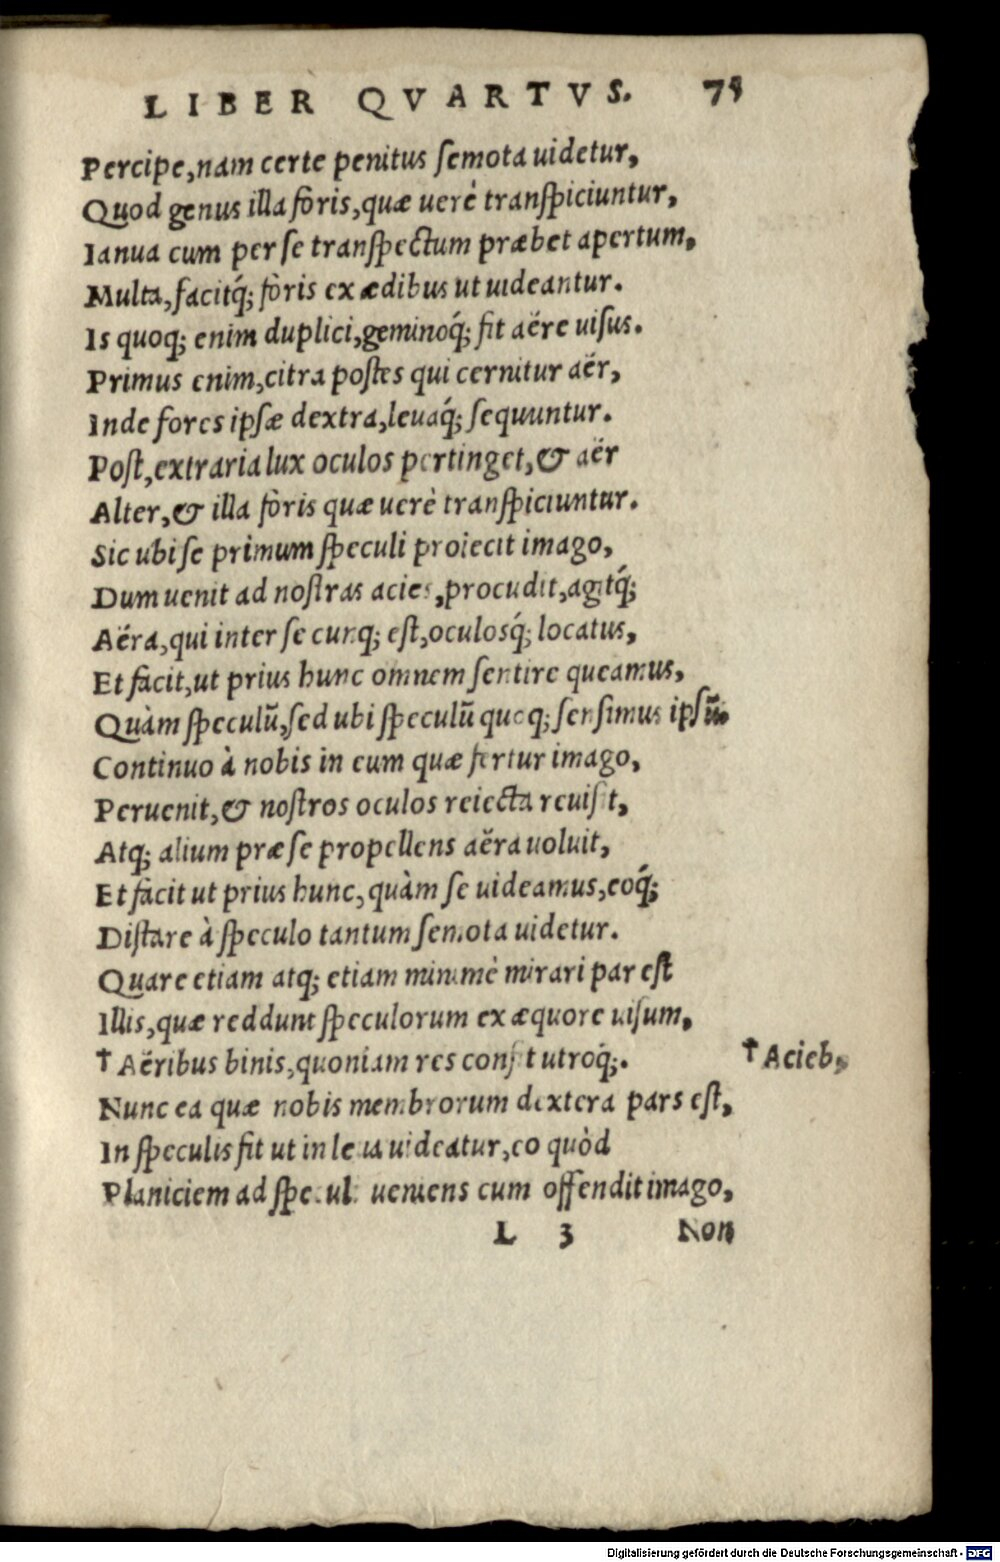 LIBER QVARTVS. 75
Percipe, nam certe penitus ſemota uidetur,
Quod genus illa foris, quæ uerè tranſpiciuntur,
Ianua cum per ſe tranſpectum præbet apertum,
Multa, facitq́; foris ex ædibus ut uideantur.
Is quoq; enim duplici, geminoq́; fit aëre uiſus.
Primus enim, citra poſtes qui cernitur aër,
Inde fores ipſæ dextra, leuaq́; ſequuntur.
Poſt, extraria lux oculos pertinget, & aër
Alter, & illa foris quæ uerè tranſpiciuntur.
Sic ubi ſe primum ſpeculi proiecit imago,
Dum uenit ad noſtras acies, procudit, agitq́;
Aëra, qui inter ſe cunq; eſt, oculosq́; locatus,
Et facit, ut prius hunc omnem ſentire queamus,
Quàm ſpeculū, ſed ubi ſpeculū quoq; ſenſimus ipſū.
Continuo à nobis in eum quæ fertur imago,
Peruenit, & noſtros oculos reiecta reuiſit,
Atq; alium præ ſe propellens aëra uoluit,
Et facit ut prius hunc, quàm ſe uideamus, eoq́;
Diſtare à ſpeculo tantum ſemota uidetur.
Quare etiam atq; etiam minimè mirari par eſt
Illis, quæ reddunt ſpeculorum ex æquore uiſum,
† Aëribus binis, quoniam res conſit utroq́;. † Acieb,
Nunc ea quæ nobis membrorum dextera pars eſt,
In ſpeculis fit ut in leua uideatur, eo quòd
Planiciem ad ſpeculi ueniens cum offendit imago,
L 3 Non
Digitalisierung gefördert durch die Deutsche Forschungsgemeinschaft - DFG